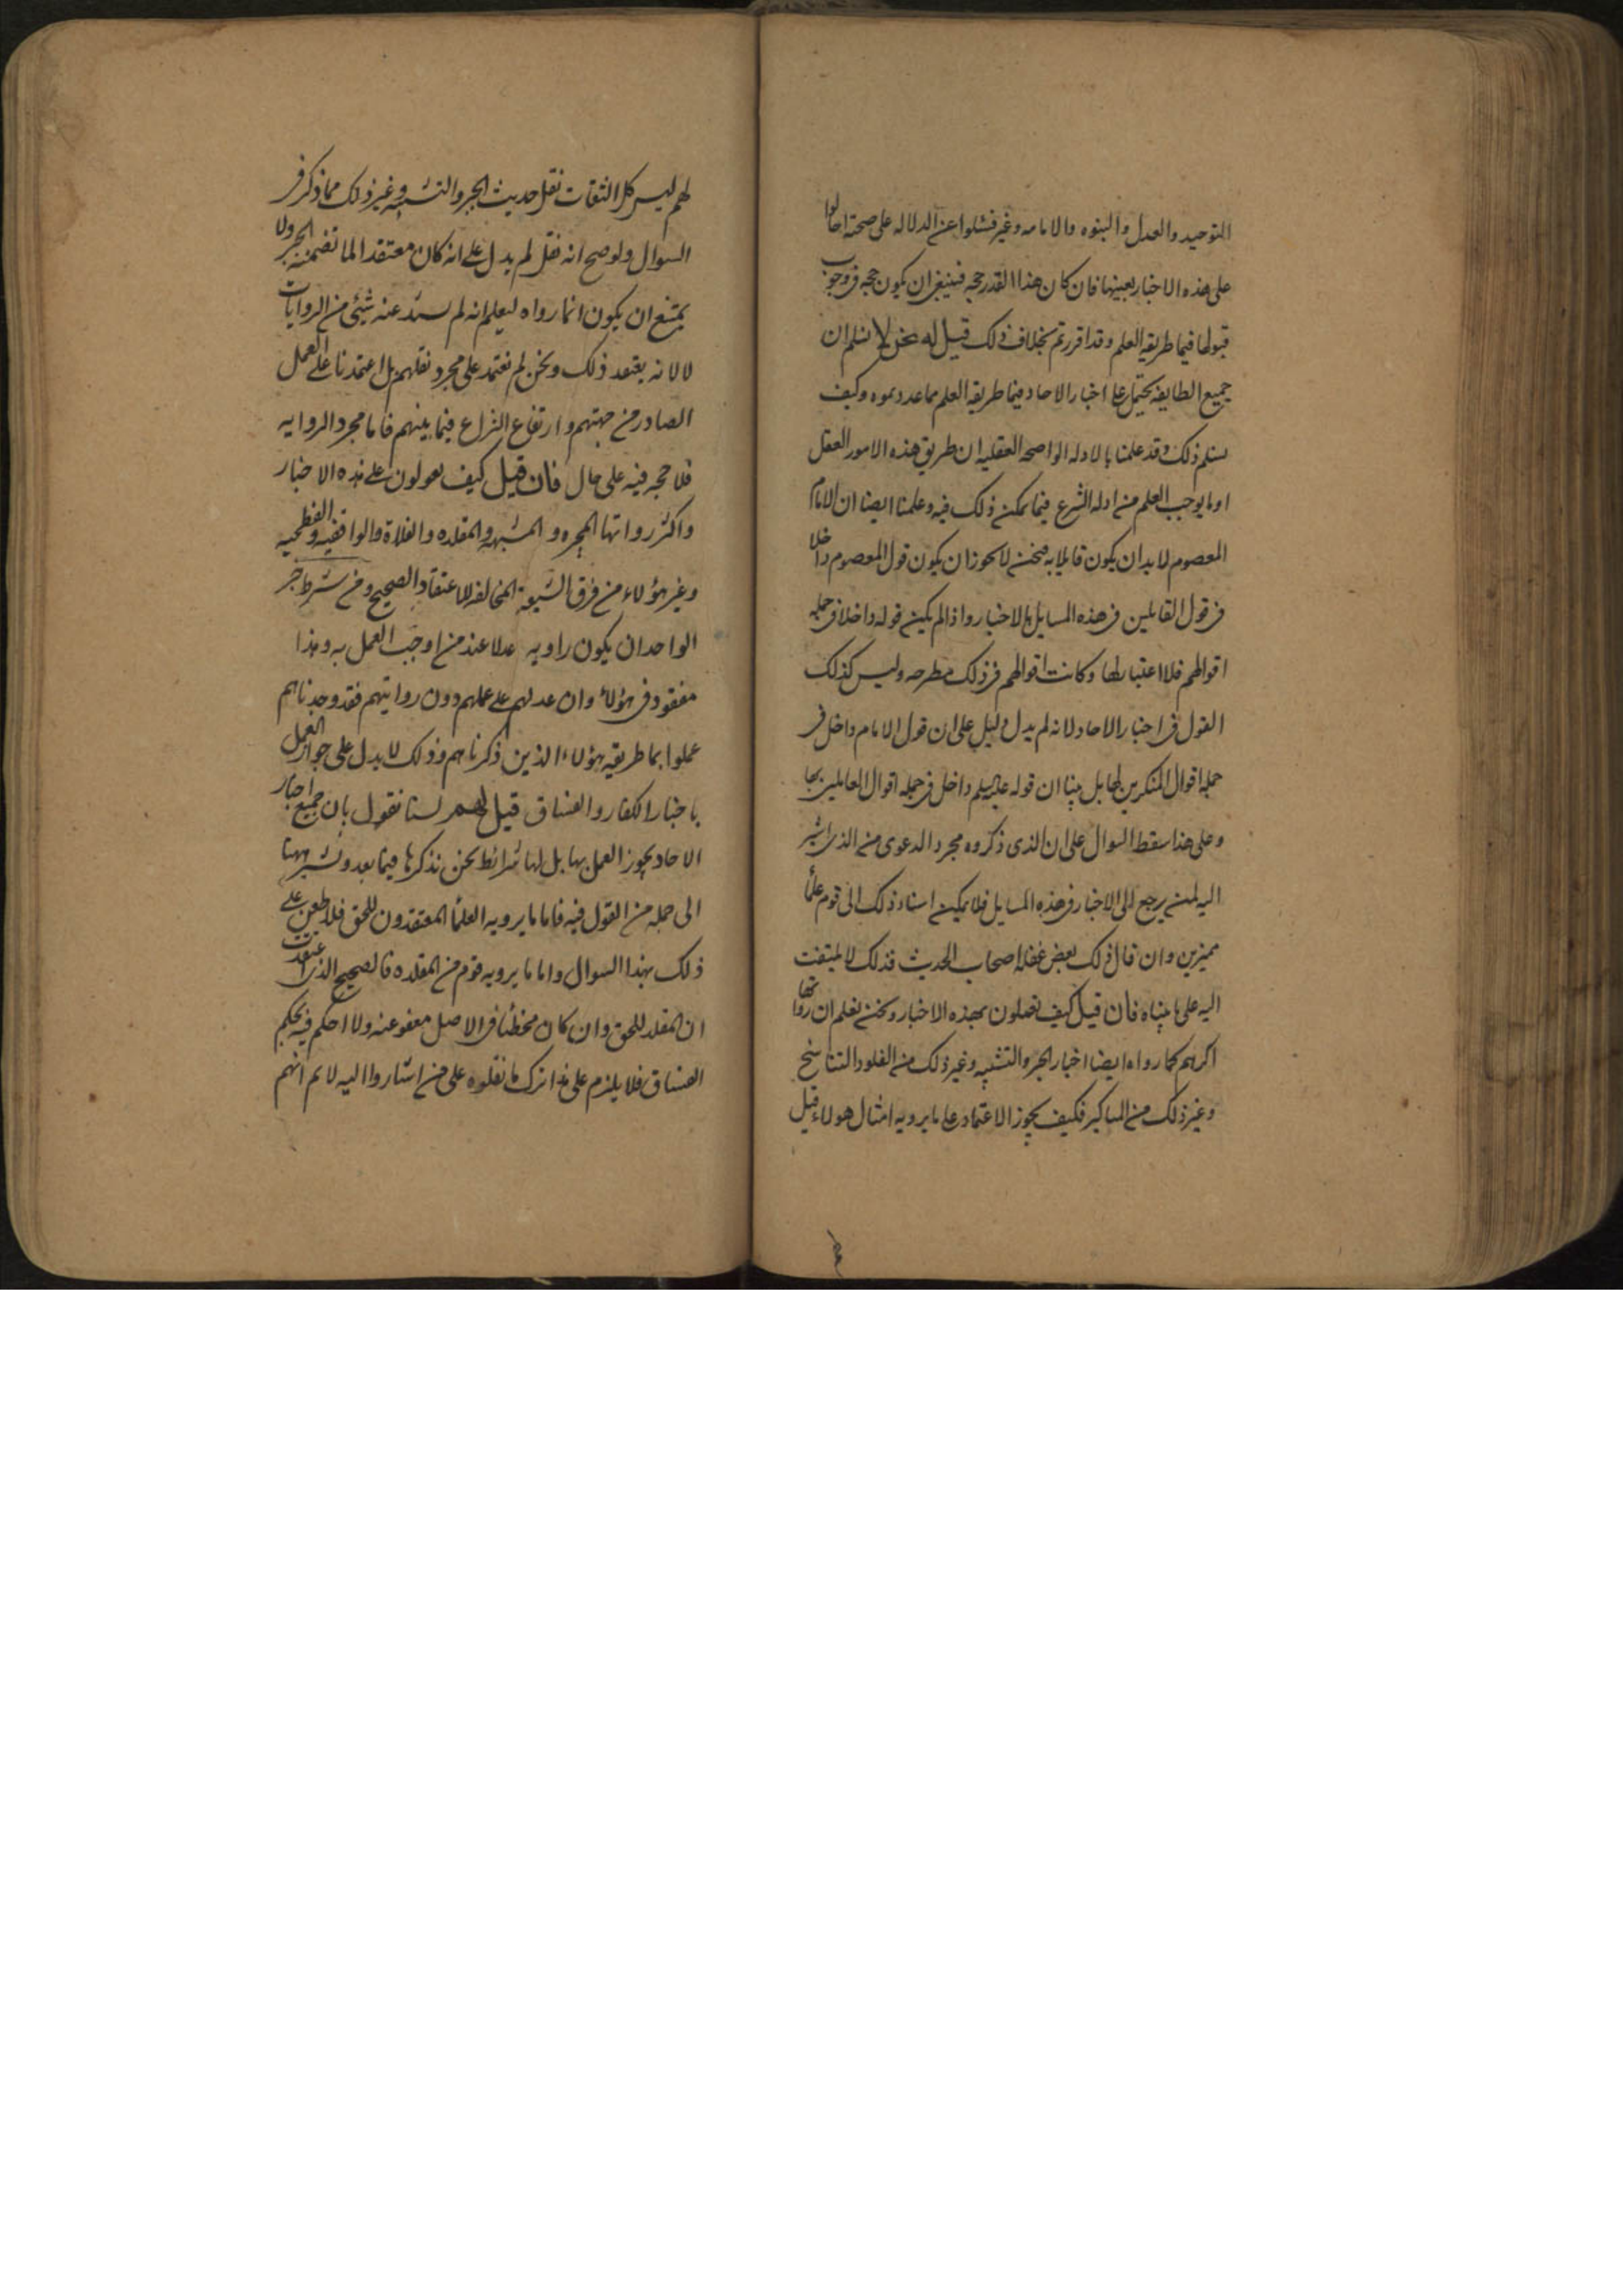 التوحيد والعدل والنبوه والامامه وغير فسئلوا عن الدلاله على صحته احالوا
على هذه الاخبار بعينها فان كان هذا القدر حجه فينبغي ان يكون حجه في وجوب
قبولها فيما طريقه العلم وقد اقررتم بخلاف ذلك قيل له نحن لا نسلم ان
جميع الطايفه تحيل على اخبار الاحاد فيما طريقه العلم مما عددتموه وكيف
نسلم ذلك وقد علمنا بالادله الواضحه العقليه ان طريق هذه الامور العقل
او ما يوجب العلم من ادله الشرع فيما يمكن ذلك فيه وعلمنا ايضا ان الامام
المعصوم لا بد ان يكون قايلا به فنحن لا نجوز ان يكون قول المعصوم داخلا
في قول القايلين في هذه المسايل بالاخبار واذا لم يكن قوله داخلا في جمله
اقوالهم فلا اعتبار لها وكانت اقوالهم في ذلك مطرحه وليس كذلك
القول في اخبار الاحاد لانه لم يدل دليل على ان قول الامام داخل في
جمله اقوال المنكرين لها بل بينا ان قوله عليه السلم داخل في جمله اقوال العاملين بها
وعلى هذا سقط السوال على ان الذي ذكروه مجرد الدعوى من الذي اشير
اليه لمن يرجع الى الاخبار في هذه المسايل فلا يمكن اسناد ذلك الى قوم علما
مميزين وان قال ذلك بعض غفله اصحاب الحديث فذلك لا يلتفت
اليه على ما بيناه فان قيل كيف تعملون بهذه الاخبار ونحن نعلم ان رواتها
اكرهم كما رواه ايضا اخبار الجبر والتشبيه وغير ذلك من الغلو والتناسخ
وغير ذلك من المناكير فكيف يجوز الاعتماد على ما يرويه امثال هولاء قيل
لهم ليس كل الثقات نقل حديث الجبر والتشبيه وغير ذلك مما ذكر في
السوال ولو صح انه نقل لم يدل على انه كان معتقدا لما تضمنته الجبر ولا
يمتنع ان يكون انما رواه ليعلم انه لم يشذ عنه شيئ من الروايات
لا لانه يعتقد ذلك ونحن لم نعتمد على مجرد نقلهم بل اعتمدنا على العمل
الصادر من جهتهم وارتفاع النزاع فيما بينهم فاما مجرد الروايه
فلا حجه فيه على حال فان قيل كيف تعولون على هذه الاخبار
واكثر رواتها المجبره والمشبهه والمقلده والغلاة والواقفيه والفطحيه
وغير هؤلاء من فرق الشيعه المخالفه للاعتقاد الصحيح ومن شرط خبر
الواحد ان يكون راويه عدلا عند من اوجب العمل به وهذا
مفقود في هؤلاء وان عدلهم على عملهم دون روايتهم فقد وجدناهم
عملوا بما طريقه هؤلاء الذين ذكرناهم وذلك لا يدل على جواز العمل
باخبار الكفار والفساق قيل لهم لسنا نقول بان جميع اخبار
الاحاد يجوز العمل بها بل لها شرائط نحن نذكرها فيما بعد ونشير ههنا
الى جمله من القول فيه فاما ما يرويه العلما المعتقدون للحق فلا طعن على
ذلك بهذا السوال واما ما يرويه قوم من المقلده فالصحيح الذي اعتقدت
ان المقلد للحق وان كان مخطئا في الاصل معفو عنه ولا احكم فيه بحكم
الفساق فلا يلزم على هذا ترك ما نقلوه على من اشاروا اليه لا نم انهم